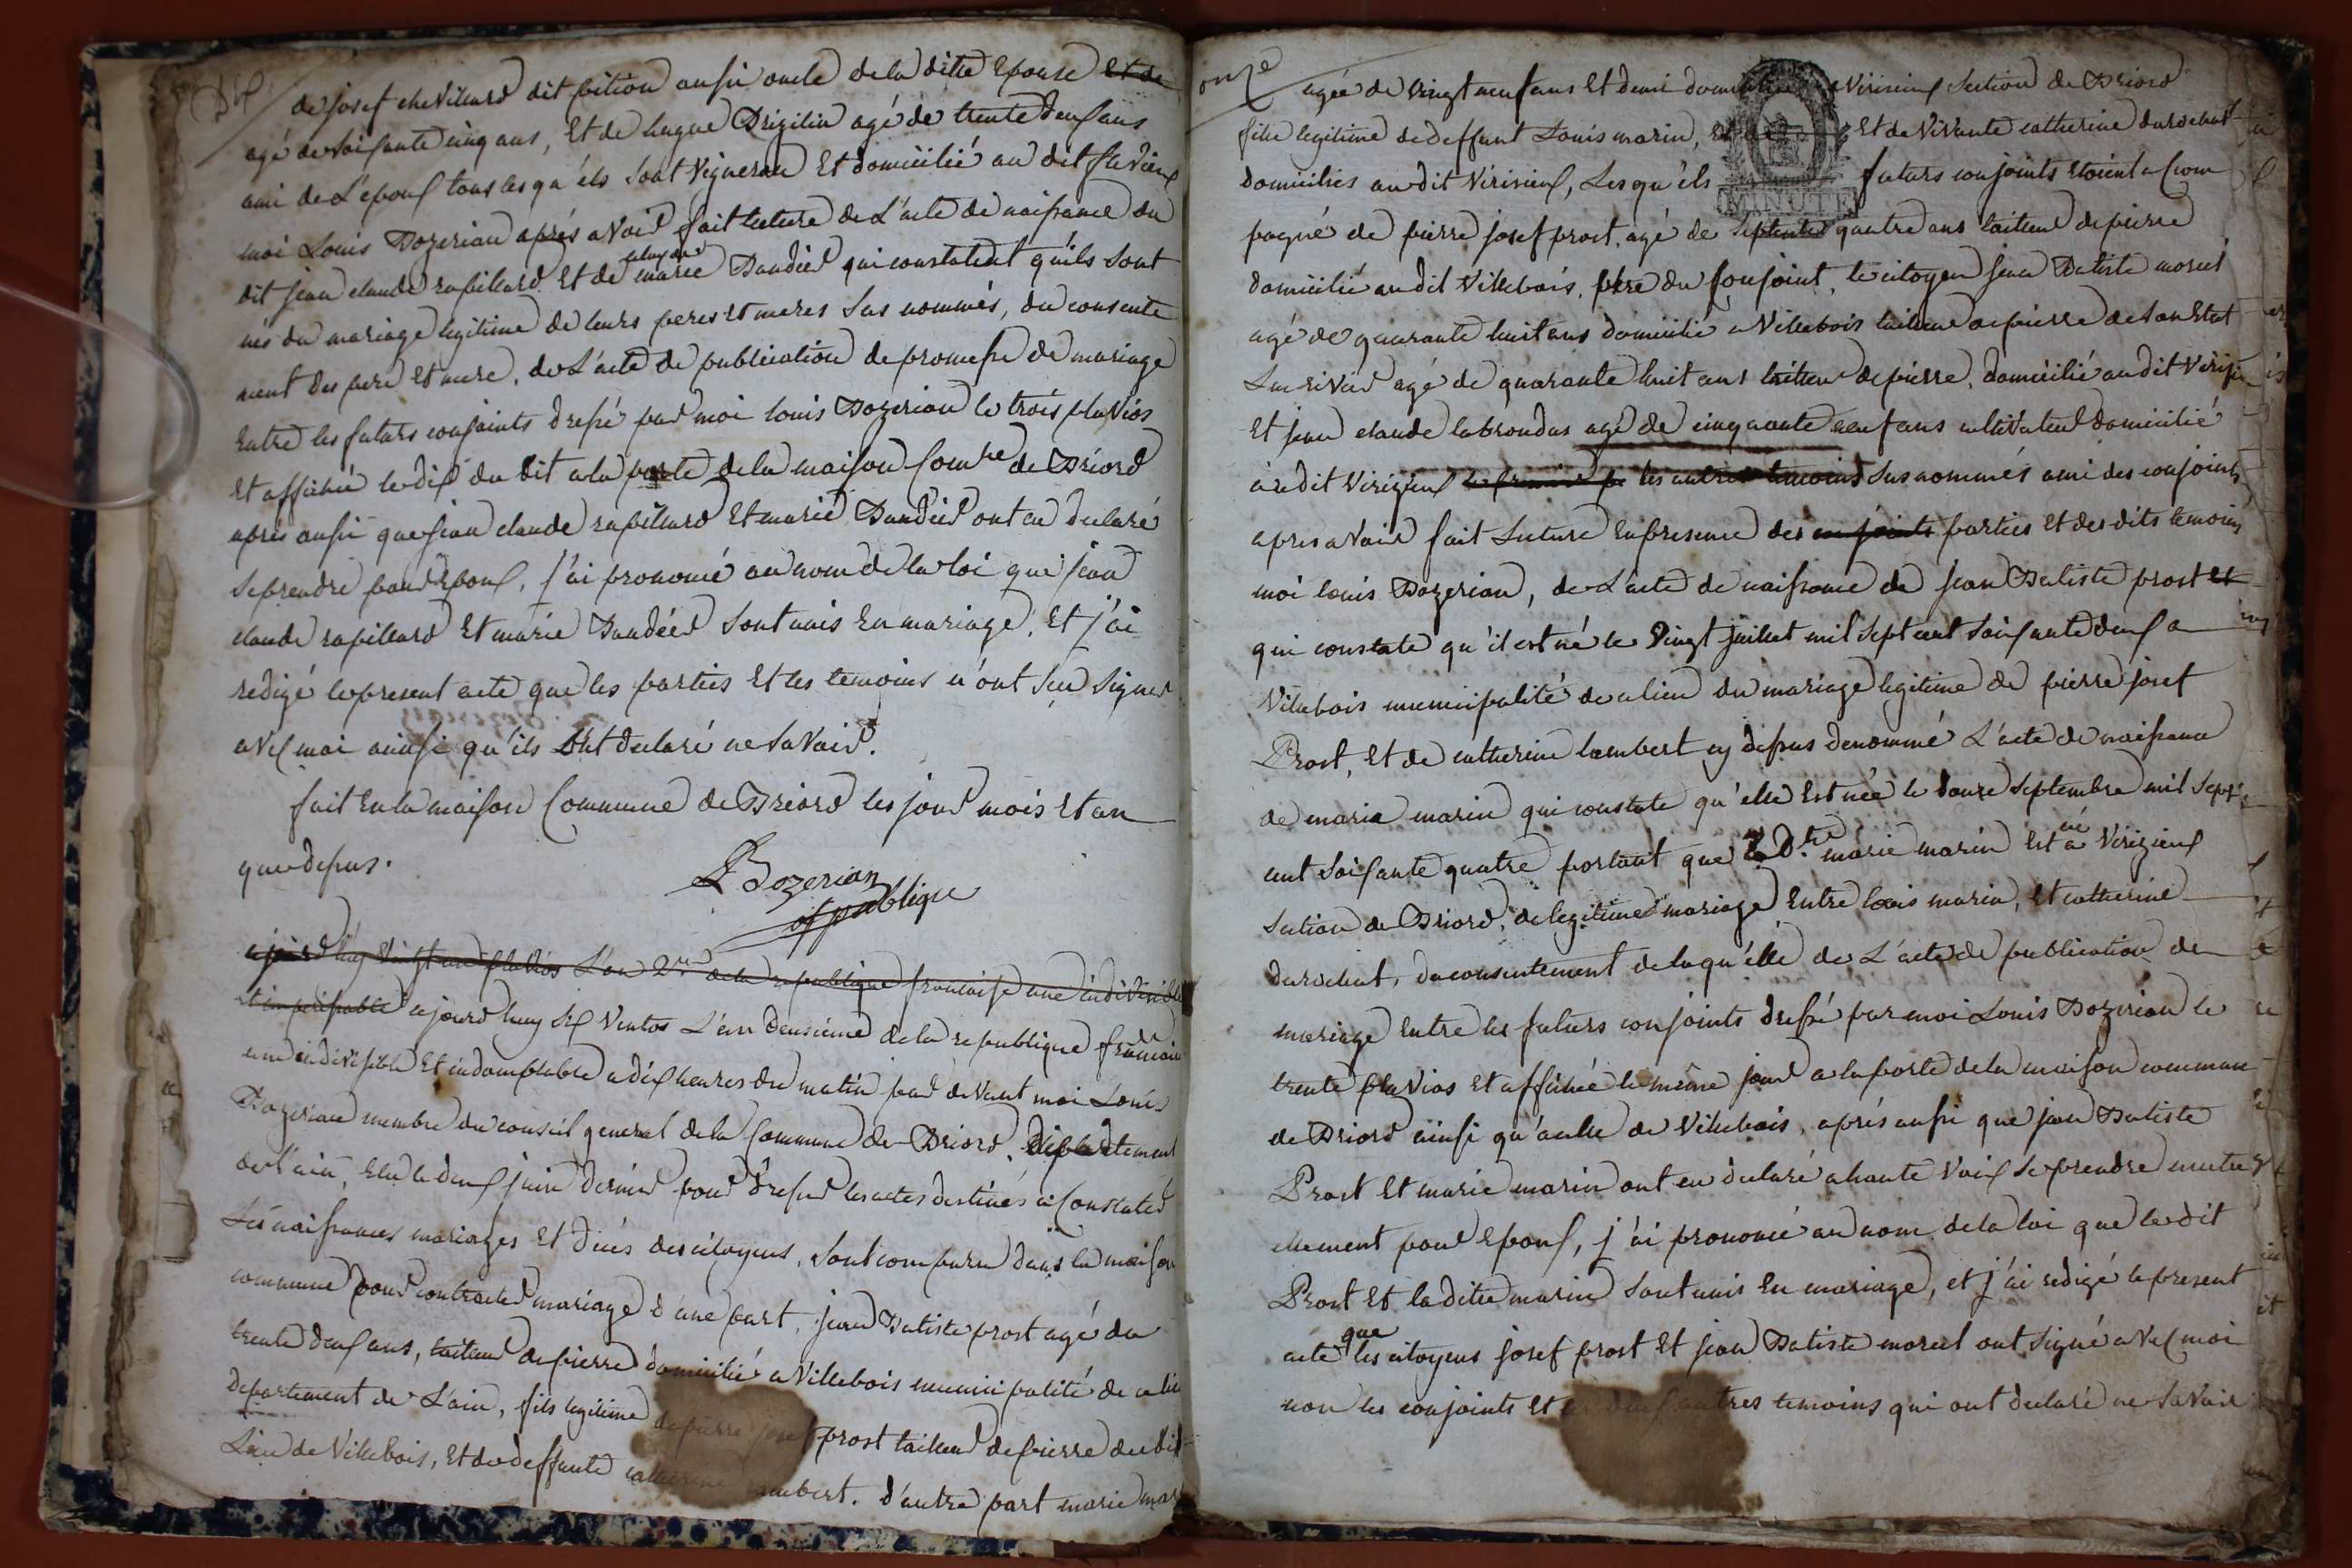 Dix
de josef chevillard dit pition aussi oncle de la ditte Epouse et de
agé de soixante cinq ans, Et de hugue Brigilin agé de trente deux ans
ami de L'epoux tous les qu'els sont Vigneron Et domicilié au dit
moi Louis Bozerian aprés avoir fait lecture de L'acte de naissance du
dit jean claude rapillard Et de marie Bandier qui constatent qu'ils sont
nés du mariage legitime de leurs peres Et meres sus nommés, du consente
ment des pere Et mere, de L'acte de publication de promesse de mariage
Entre les futurs conjoints dressé par moi louis Bozerian le trois pluvios
Et affichée le dix du dit a la porte de la maison Comne de Briord
aprés aussi que jean claude rapillard Et marie Bandier ont eu declaré
se prendre pour Epoux, j'ai prononcé au nom de la loi que jean
claude rapillard Et marie Bandier sont unis En mariage, Et j'ai
redigé le present acte que les parties Et les temoins n'ont seu signer
avec moi ainsi qu'ils ont declaré ne savoir.
fait En la maison Commune de Briord les jour mois Et an
que depus.
L Bozerian
of publique
ajourd'huy vingt un pluvios L'an 2me de la republique francaise une indivisible
Et imperissable ajourd huy six Ventos L'an deusieme de la republique francaise
une indivisible Et indomptable a dix heures du matin par devant moi Louis
Bozerian membre du conseil general de la Commune de Briord, departement
de l'ain, Elu le deux juin dernier pour dresser les actes destinés a Constater
les naissances mariages Et décés des citoyens, sont comparu dans la maison
commune pour contracter mariage d'une part, jean Batiste prost agé de
trente deux ans, tailleur de pierre domicilié a Villebois municipalité de ce lieu
departement de L'ain, fils legitime de pierre josef prost tailleur de pierre du dit
Lieu de Villebois, Et de deffunte catherine lambert. d'autre part marie marin
onze
agée de vingt neuf ans Et demi domiciliée a Virisieux Section de Briord
fille legitime de deffunt Louis marin, Et de Vivante catherine durochat
domiciliés au dit Virisieux, Les qu'els futurs conjoints etoient a Ccom
MINUTE
pagné de pierre josef prost, agé de septente quatre ans tailleur de pierre
domicilié au dit Villebois, pere du Conjoint, le citoyen jean Batiste morel
agé de quarante huit ans domicilié a Villebois tailleur de pierre de son Etat
Luc rivoir agé de quarante huit ans tailleur de pierre, domicilié au dit Virisi
Et jean claude labrondas agé de cinquante neuf ans cultivateur domicilié
au dit Virizieux les autres temoins sus nommés ami des conjoints
apres avoir fait Lecture En presence des conjoints parties Et des dits temoins
moi louis Bozerian, de L'acte de naissance de jean Batiste prost et
qui constate qu'il est né le Vingt juillet mil sept cent soixante deux a
Villebois municipalité de ce lieu du mariage legitime de pierre josef
Prost, Et de catherine lambert cy dessus denommé L'acte de naissance
de marie marin qui constate qu'elle Est née le douze septembre mil sept
cent soixante quatre portant que la dte marie marin Est né a Virizieux
Section de Briord, de legitime mariage Entre louis marin, Et catherine
durochat, du consentement de la qu'elle de L'acte de publication de
mariage Entre les futurs conjoints dressé par moi Louis Bozerian le
trente pluvios Et affichée le même jour a la porte de la maison commune
de Briord ainsi qu'a celle de Villebois, aprés aussi que jean Batiste
Prost Et marie marin ont eu declaré a haute voix se prendre mutu
ellement pour Epoux, j'ai prononcé au nom de la loi que le dit
Prost Et la dite marin sont unis En mariage, et j'ai redigé le present
acte que les citoyens josef prost Et jean Batiste morel ont signé avec moi
non les conjoints Et les deux autres temoins qui ont declaré ne savoir